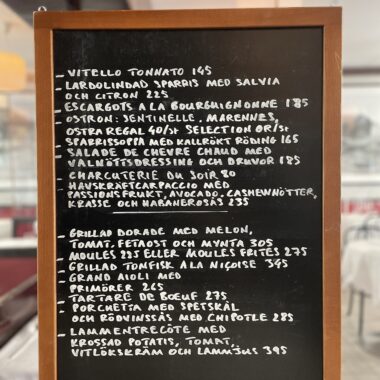 – VITELLO TONNATO 145
– LARDOLINDAD SPARRIS MED SALVIA
OCH CITRON 225
– ESCARGOTS A LA BOURGHIGNONNE 185
– OSTRON: SENTINELLE, MARENNES,
OSTRA REGAL 40/st SELECTION 0R/st
– SPARRISSOPPA MED KALLRÖKT RÖDING 165
– SALADE DE CHEVRE CHAUD MED
VALNÖTTSDRESSING OCH DRUVOR 185
– CHARCUTERIE DU JOIR 80
– HAVSKRÄFTCARPACCIO MED
PASSIONSFRUKT, AVOCADO, CASHEWNÖTTER,
KRASSE OCH HABANEROSÅS 235
– GRILLAD DORADE MED MELON,
TOMAT, FETAOST OCH MYNTA 305
– MOULES 225 ELLER MOULES FRITES 275
– GRILLAD TONFISK A LA NIÇOISE 345
– GRAND AIOLI MED
PRIMÖRER 265
– TARTARE DE BŒUF 275
– PORCHETTA MED SPETSKÅL
OCH RÖDVINSSÅS MED CHIPOTLE 285
– LAMMENTRECÔTE MED
KROSSAD POTATIS, TOMAT,
VITLÖKSKRÄM OCH LAMMJUS 395